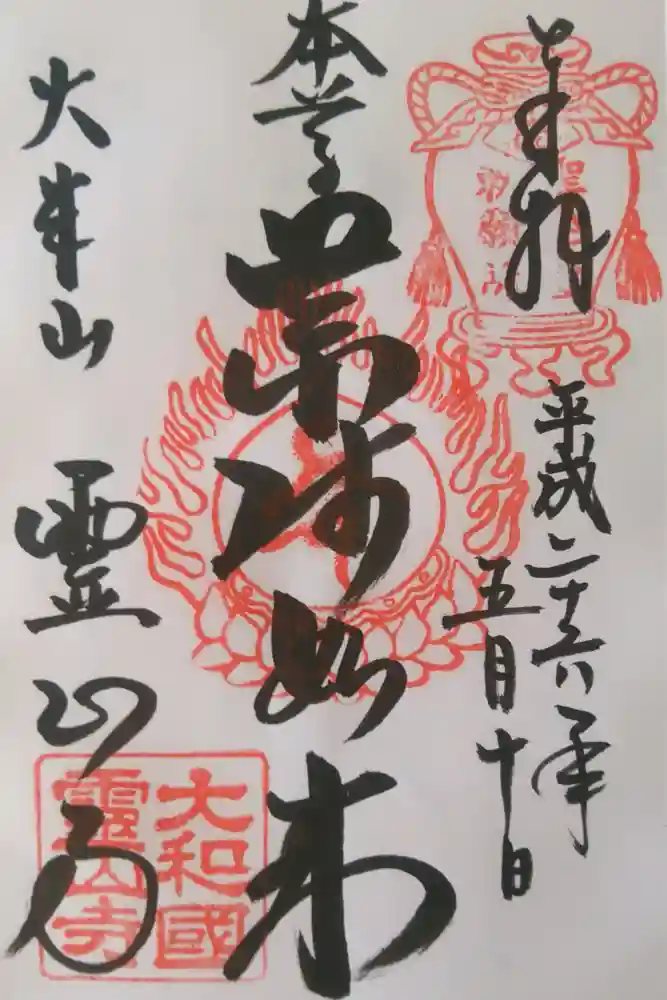 奉拝
勅願所
平成二十六年
五月十日
本尊
薬師如来
山
霊山寺
大和國
靈山寺